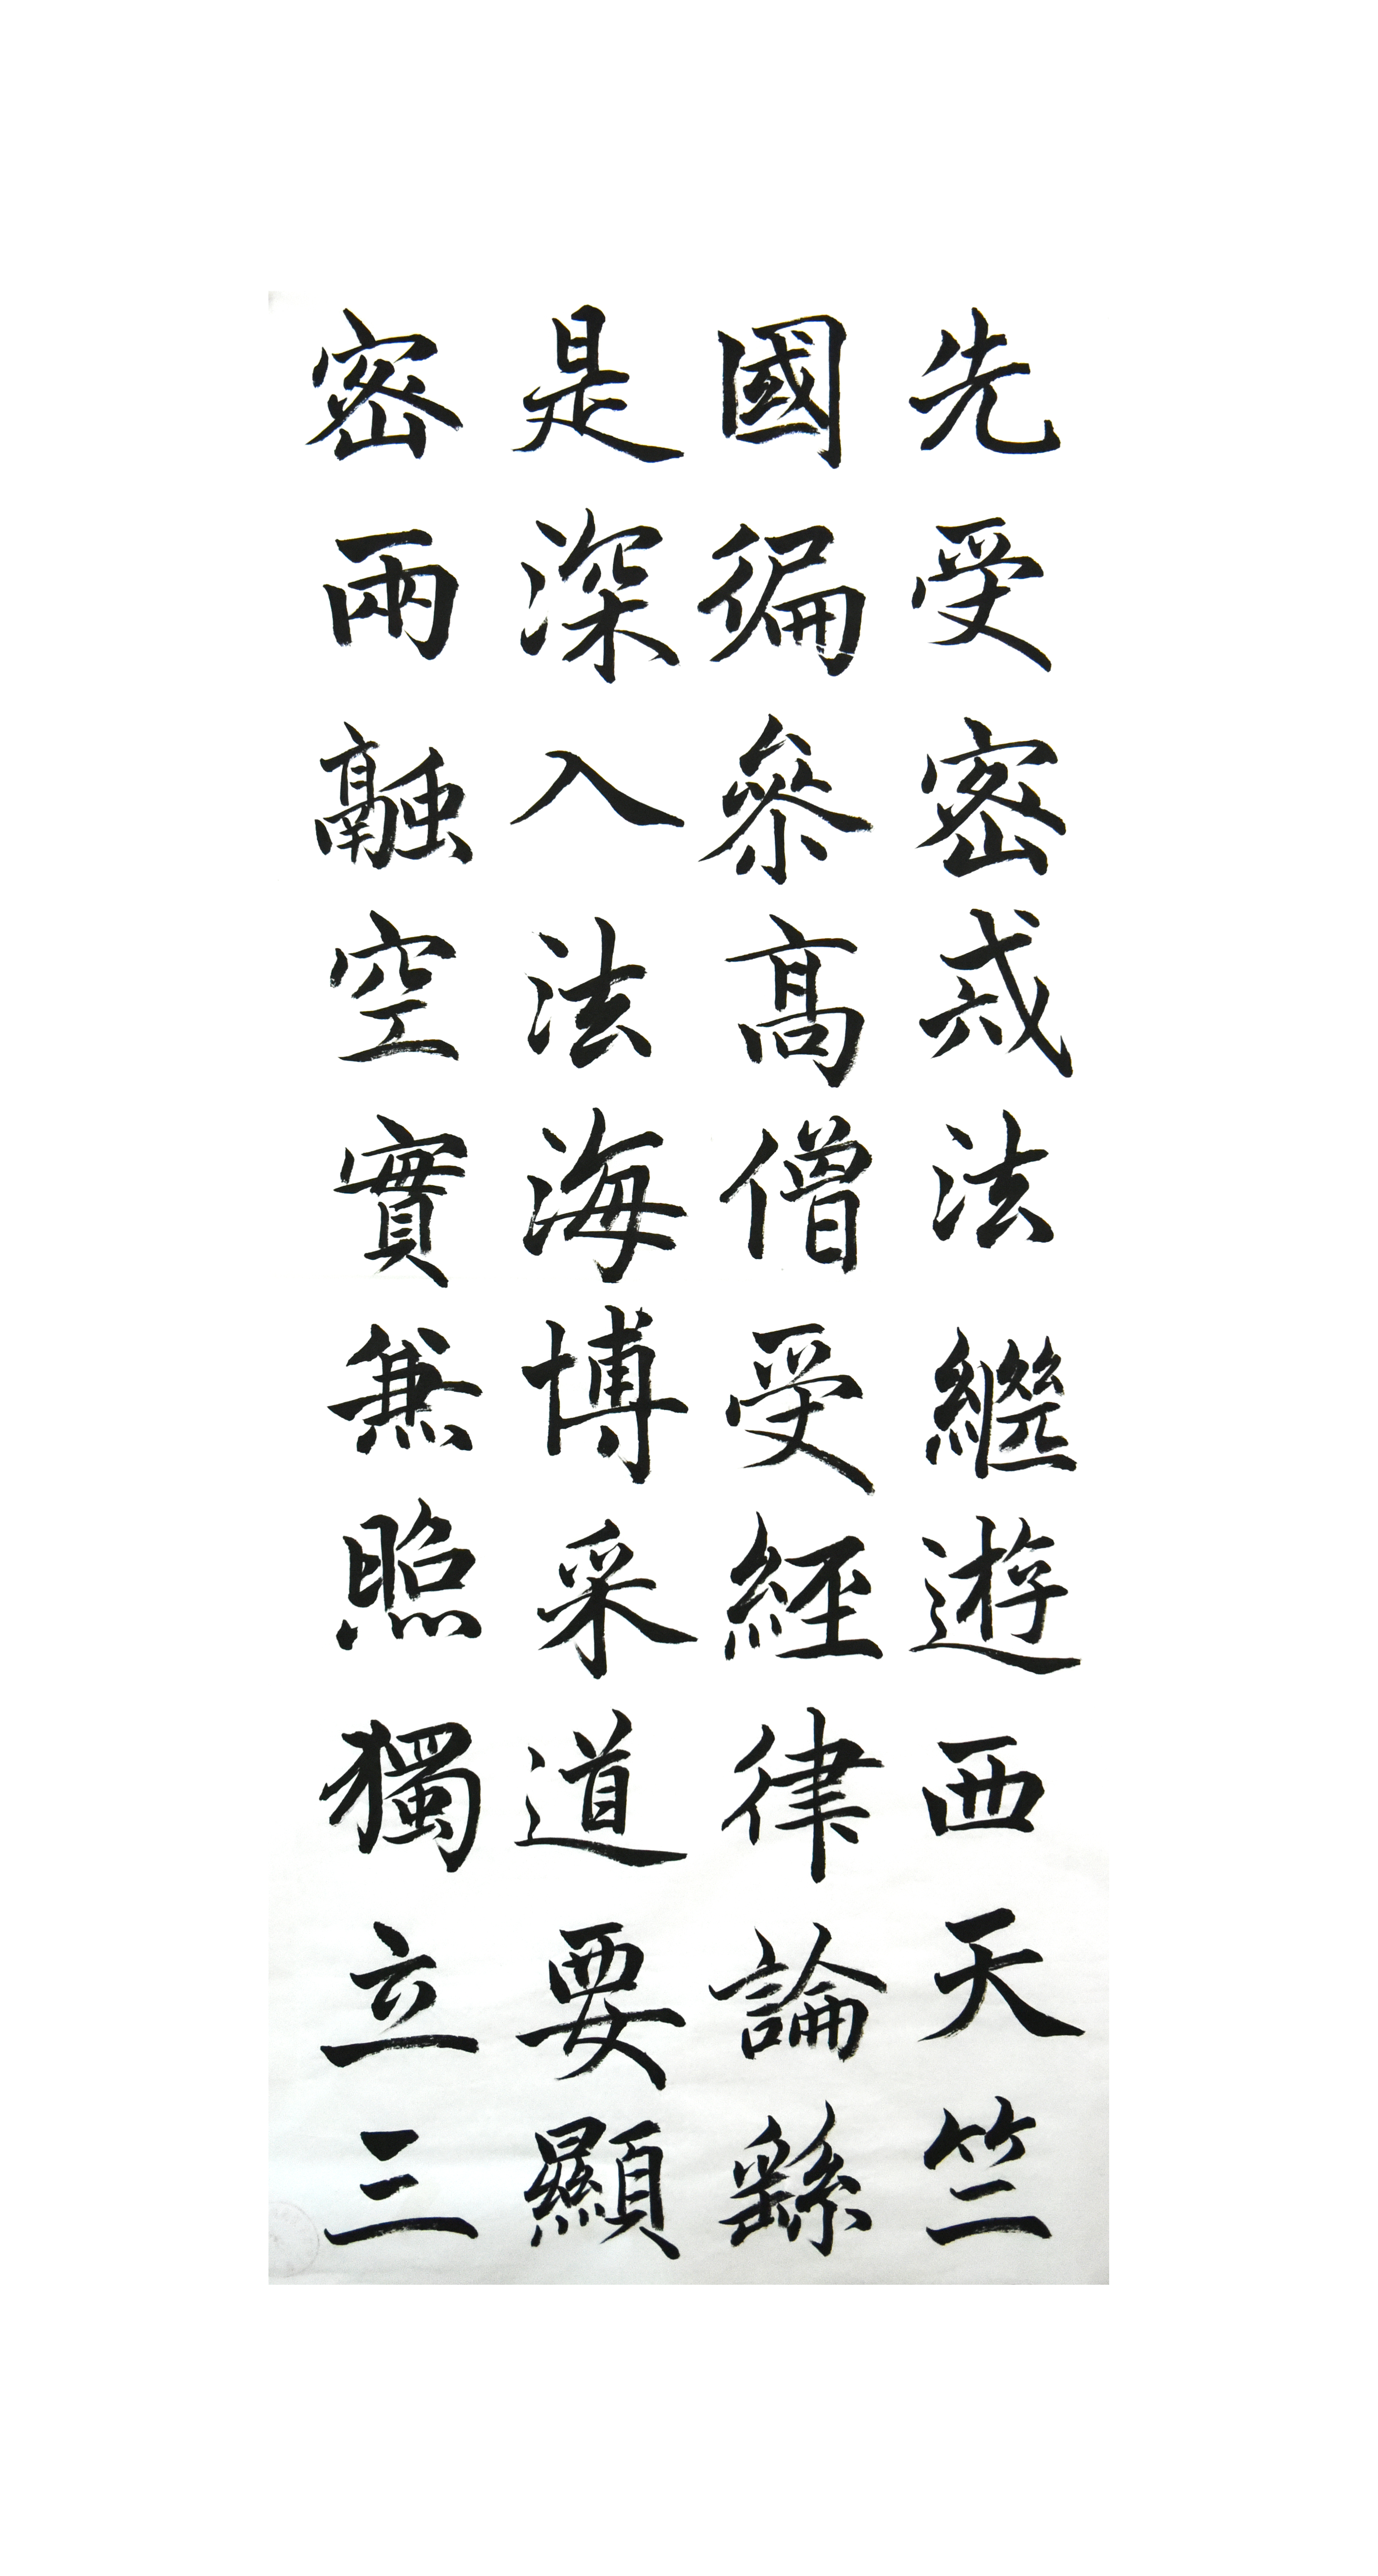 先受密戒法繼遊西天竺
國徧參高僧受經律論繇
是深入法海博采道要顯
密兩融空實兼照獨立三